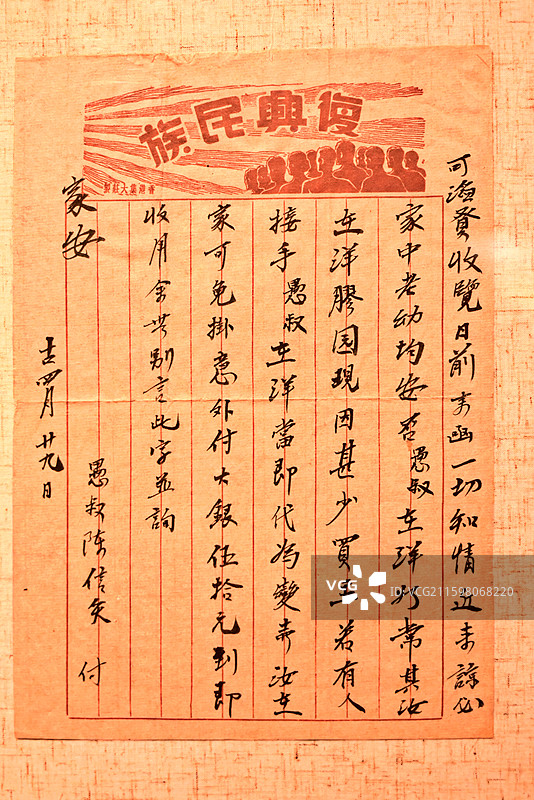 復興民族
香港集大莊製
可滄賢收覽日前來函一切知情近來諒必
家中老幼均安否愚叔在洋如常其汝
在洋膠園現因甚少買主若有人
接手愚叔在洋當即代為變弃汝在
家可免掛意外付大銀伍拾元到即
收用余無別言此字並詢
家安
愚叔陈信 付
四月廿九日
VCG
ID:VCG211598068220